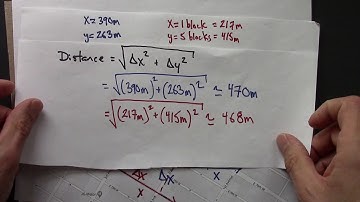 x=390m x=1 block=217m
y=263m y=5 blocks=415m
Distance = √Δx² + Δy²
= √(390m)²+(263m)² ≃ 470m
= √(217m)²+(415m)² ≃ 468m
Δx Δx